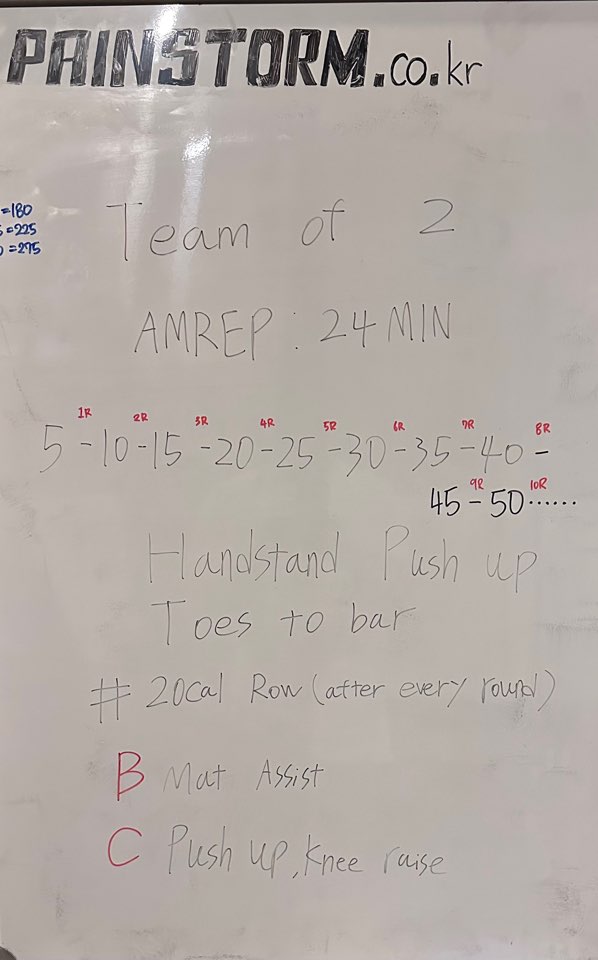 PAINSTORM.co.kr
=180
5=225
0=275
Team of 2
AMREP : 24 MIN
1R 2R 3R 4R 5R 6R 7R 8R
5-10-15-20-25-30-35-40-
9R 10R
45-50......
Handstand Push up
Toes to bar
# 20cal Row (after every round)
B Mat Assist
C Push up, knee raise